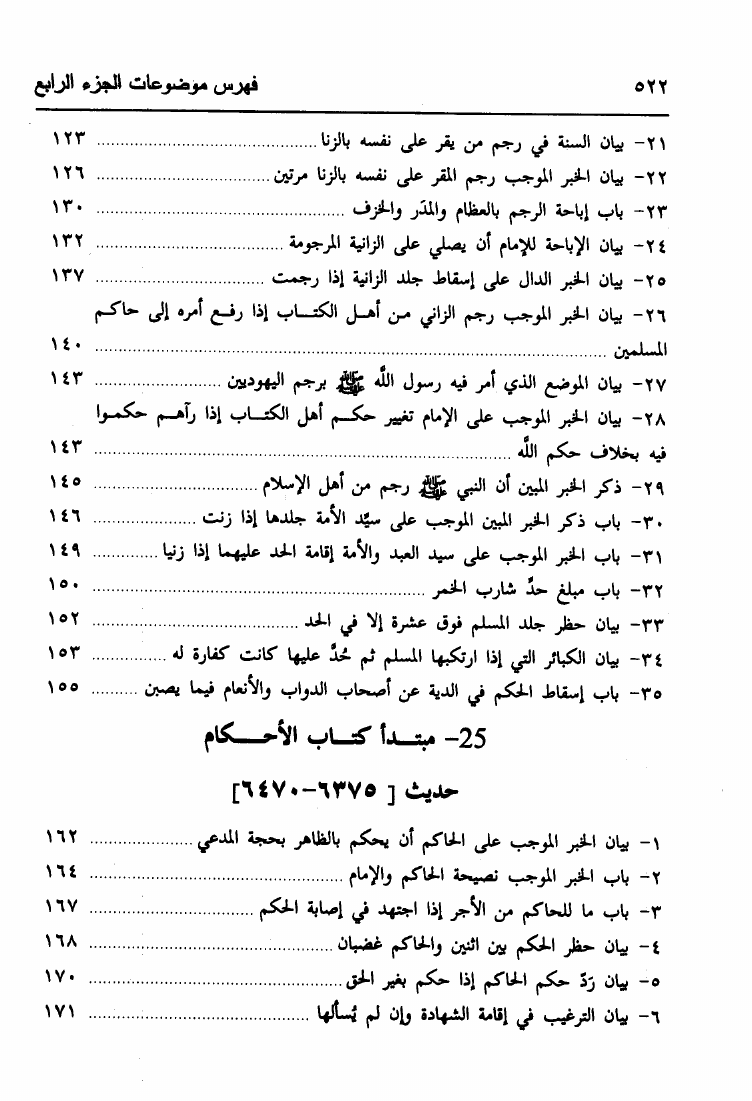 ٥٢٢ فهرس موضوعات الجزء الرابع
٢١- بيان السنة في رجم من يقر على نفسه بالزنا ........ ١٢٣
٢٢- بيان الخبر الموجب رجم المقر على نفسه بالزنا مرتين ........ ١٢٦
٢٣- باب إباحة الرجم بالعظام والمدَر والخزف ........ ١٣٠
٢٤- بيان الإباحة للإمام أن يصلي على الزانية المرجومة ........ ١٣٢
٢٥- بيان الخبر الدال على إسقاط جلد الزانية إذا رجمت ........ ١٣٧
٢٦- بيان الخبر الموجب رجم الزاني من أهل الكتاب إذا رفع أمره إلى حاكم
المسلمين ........ ١٤٠
٢٧- بيان الموضع الذي أمر فيه رسول اللَّه ﷺ برجم اليهوديين ........ ١٤٣
٢٨- بيان الخبر الموجب على الإمام تغيير حكم أهل الكتاب إذا رآهم حكموا
فيه بخلاف حكم اللَّه ........ ١٤٣
٢٩- ذكر الخبر المبين أن النبي ﷺ رجم من أهل الإسلام ........ ١٤٥
٣٠- باب ذكر الخبر المبين الموجب على سيِّد الأمة جلدها إذا زنت ........ ١٤٦
٣١- باب الخبر الموجب على سيد العبد والأمة إقامة الحد عليهما إذا زنيا ........ ١٤٩
٣٢- باب مبلغ حدِّ شارب الخمر ........ ١٥٠
٣٣- بيان حظر جلد المسلم فوق عشرة إلا في الحد ........ ١٥٢
٣٤- بيان الكبائر التي إذا ارتكبها المسلم ثم حُدَّ عليها كانت كفارة له ........ ١٥٣
٣٥- باب إسقاط الحكم في الدية عن أصحاب الدواب والأنعام فيما يصبن ........ ١٥٥
25- مبتدأ كتاب الأحكام
حديث [ ٦٣٧٥-٦٤٧٠]
١- بيان الخبر الموجب على الحاكم أن يحكم بالظاهر بحجة المدعي ........ ١٦٢
٢- باب الخبر الموجب نصيحة الحاكم والإمام ........ ١٦٤
٣- باب ما للحاكم من الأجر إذا اجتهد في إصابة الحكم ........ ١٦٧
٤- بيان حظر الحكم بين اثنين والحاكم غضبان ........ ١٦٨
٥- بيان رَدّ حكم الحاكم إذا حكم بغير الحق ........ ١٧٠
٦- بيان الترغيب في إقامة الشهادة وإن لم يُسألها ........ ١٧١